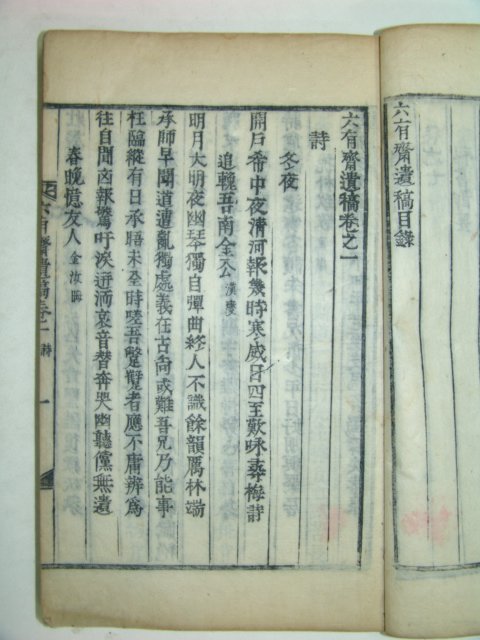 六有齋遺稿目錄
六有齋遺稿卷之一
詩
冬夜
開戶希中夜淸河報幾時寒威日四至歎咏尋梅詩
追輓吾南金公 漢燮
明月大明夜幽琴獨自彈曲終人不識餘韻厲林端
承師早聞道遭亂獨處義在古尙或難吾兄乃能事
枉臨縱有日承晤未全時嗟吾躄躄者應不庸辨爲
往自聞凶報驚吁淚迸洏哀音替奔哭幽聽儻無遺
春晩憶友人 金汝
六有齋遺稿卷之一 詩 一